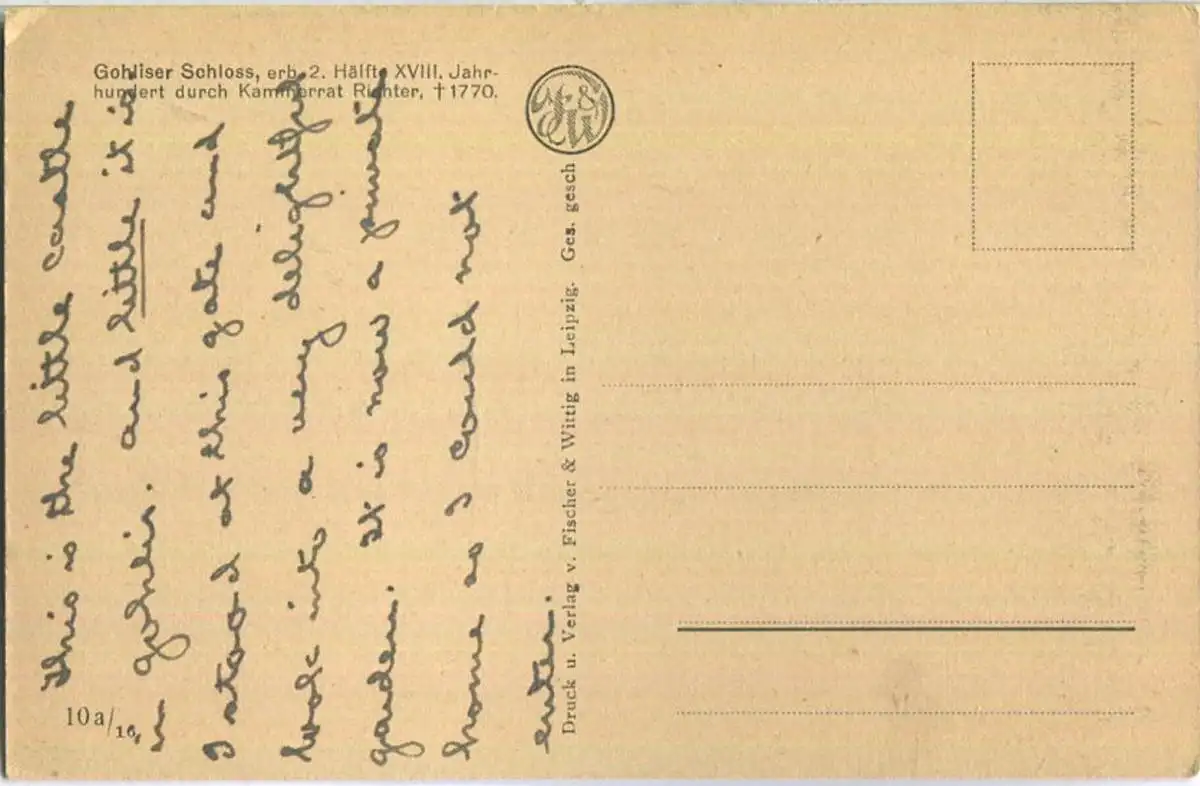 Gohliser Schloss, erb. 2. Hälfte XVIII. Jahr-
hundert durch Kammerrat Richter, † 1770.
This is the little castle
in Gohlis. and little it is
I stood at this gate and
look into a very delightful
garden. It is now a private
home so I could not
enter.
10a/16.
Druck u. Verlag v. Fischer & Wittig in Leipzig. Ges. gesch
F & W